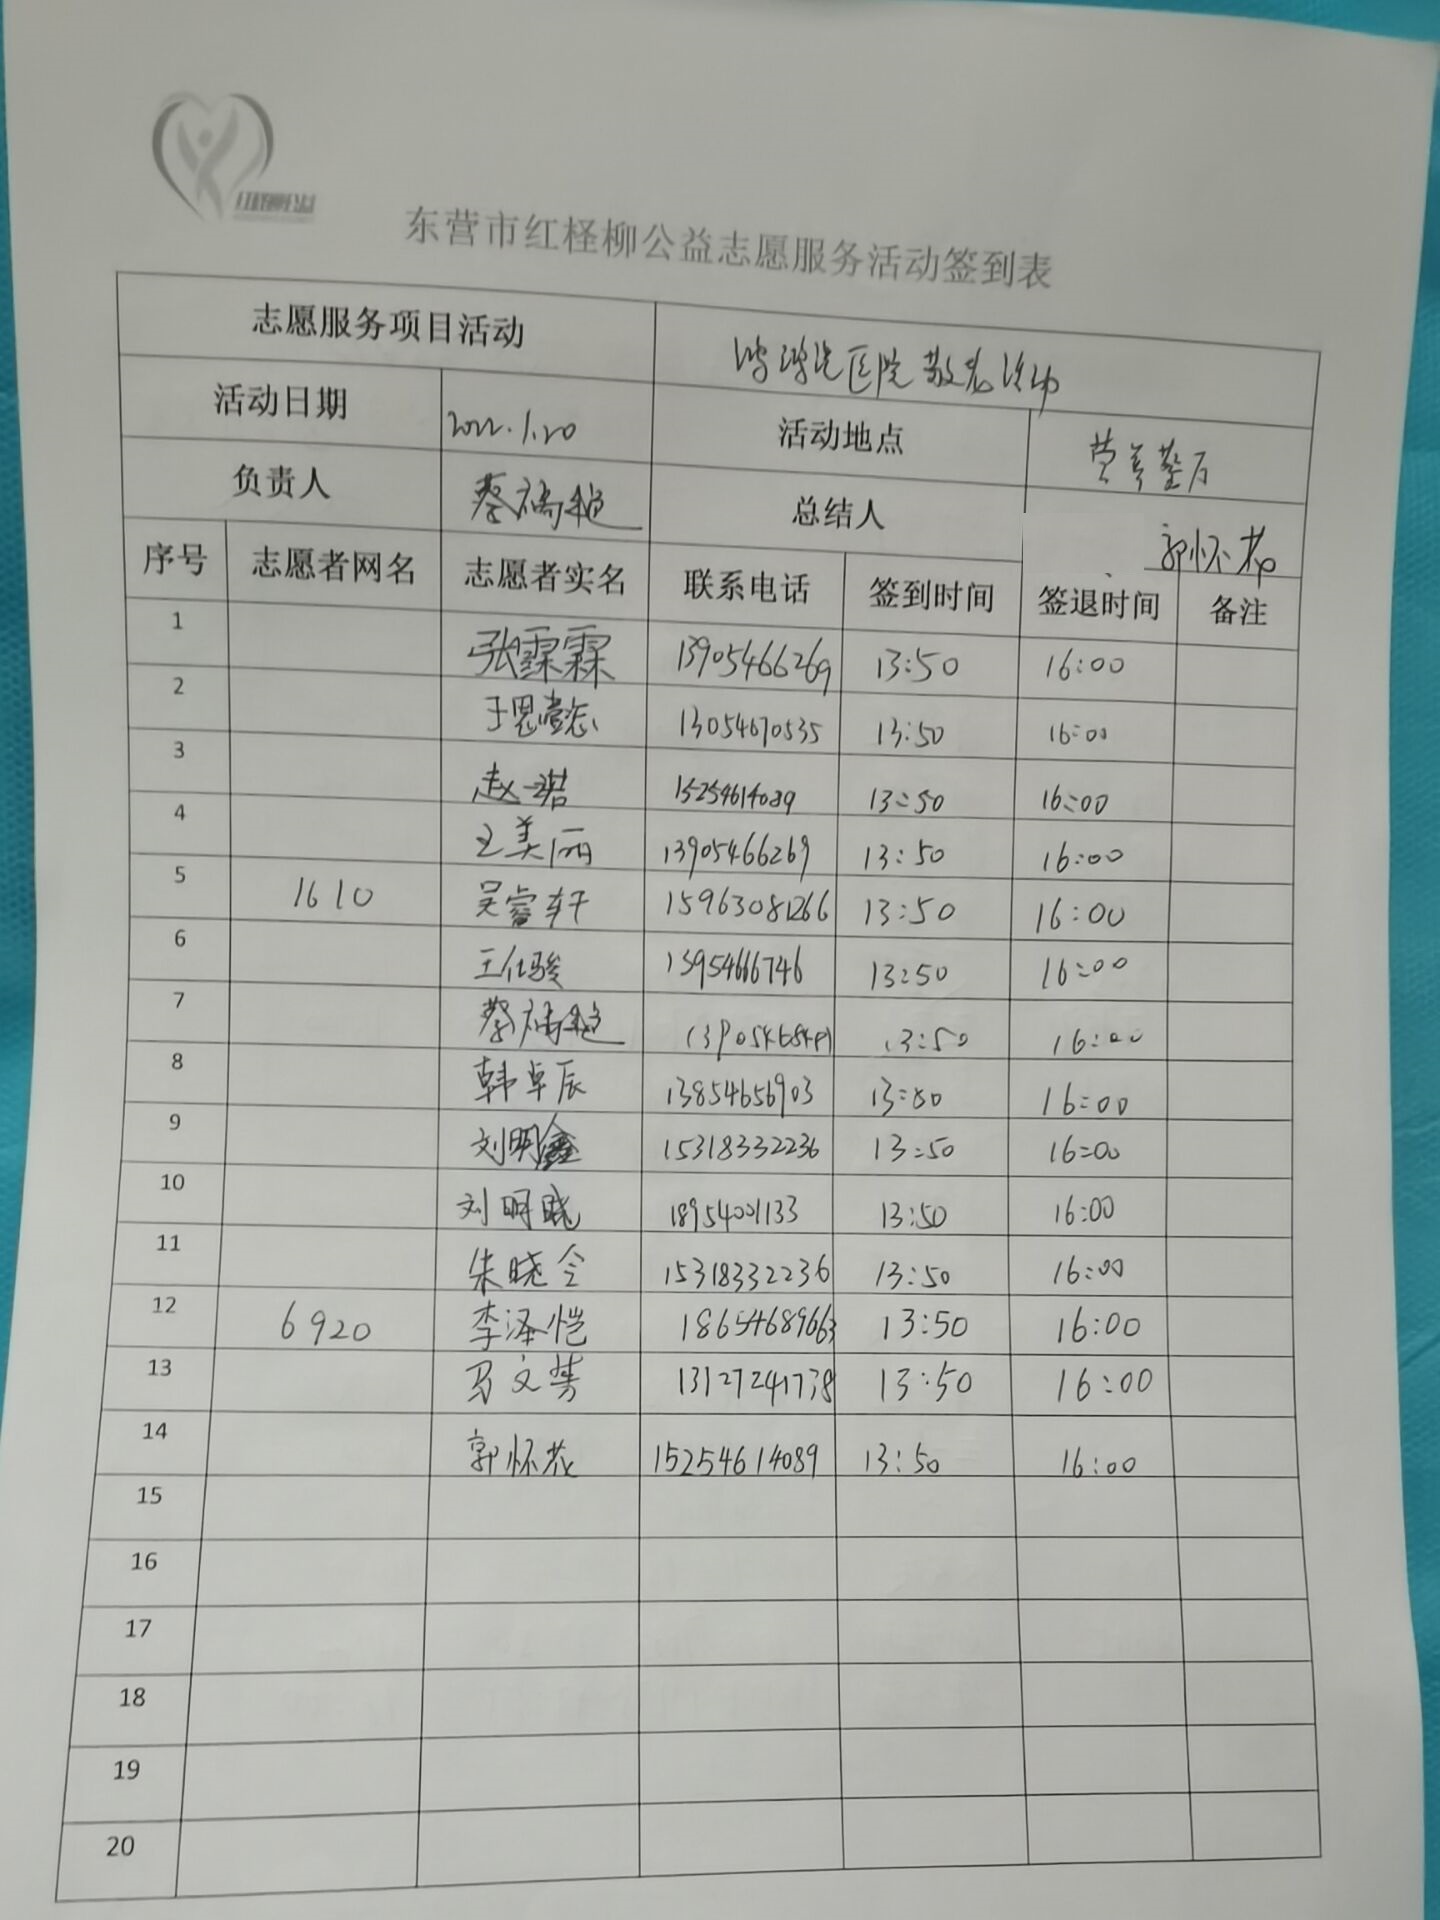 红柽柳公益
东营市红柽柳公益志愿服务活动签到表
志愿服务项目活动 医院敬老活动
活动日期 2022.1.20 活动地点
负责人 蔡 总结人 郭怀花
序号 志愿者网名 志愿者实名 联系电话 签到时间 签退时间 备注
1 张霖霖 13905466269 13:50 16:00
2 于恩懿 13054670535 13:50 16:00
3 赵一诺 15254614089 13:50 16:00
4 王美丽 13905466269 13:50 16:00
5 1610 吴睿轩 15963081266 13:50 16:00
6 王仕骏 13954666746 13:50 16:00
7 蔡 13:50 16:00
8 韩卓辰 13854656903 13:50 16:00
9 刘明鑫 15318332236 13:50 16:00
10 刘明晓 18954001133 13:50 16:00
11 朱晓令 15318332236 13:50 16:00
12 6920 李泽恺 18654689663 13:50 16:00
13 马文 13127241738 13:50 16:00
14 郭怀花 15254614089 13:50 16:00
15
16
17
18
19
20